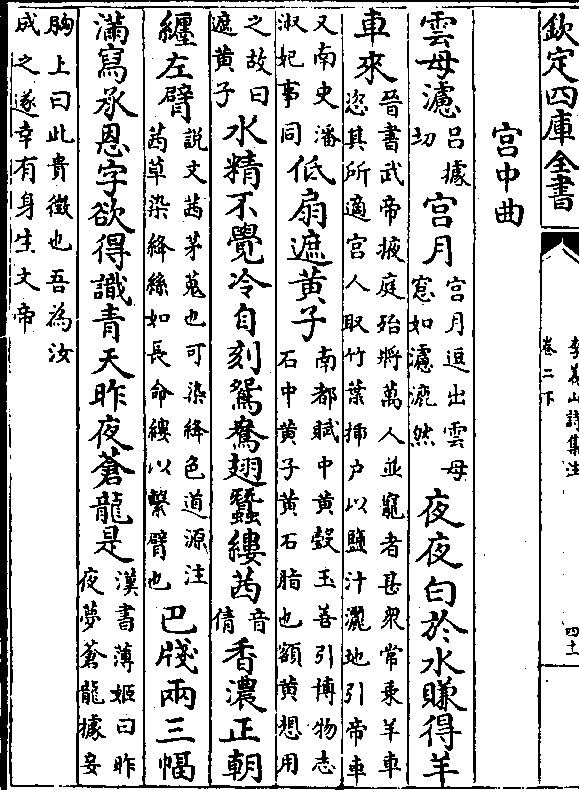 欽定四庫全書
李義山詩集注
卷二下
四十一
宫中曲
雲母濾吕據切宫月宫月逗出雲母窓如濾漉然夜夜白於水賺得羊
車來晉書武帝掖庭殆將萬人並寵者甚衆常乘羊車恣其所適宫人取竹葉揷户以鹽汁灑地引帝車
又南史潘淑妃事同低扇遮黄子南都賦中黄瑴玉善引博物志石中黄子黄石脂也額黄想用
之故曰遮黄子水精不覺冷自刻鴛鴦翅蠶縷茜音倩香濃正朝
纏左臂説文茜茅蒐也可染絳色道源注茜草染絳絲如長命縷以繫臂也巴牋兩三幅
滿寫承恩字欲得識青天昨夜蒼龍是漢書薄姬曰昨夜夢蒼龍據妾
胸上曰此貴徴也吾為汝成之遂幸有身生文帝